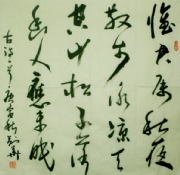 懷君属秋夜
散步詠凉天
空山松子落
幽人應未眠
古詩一首